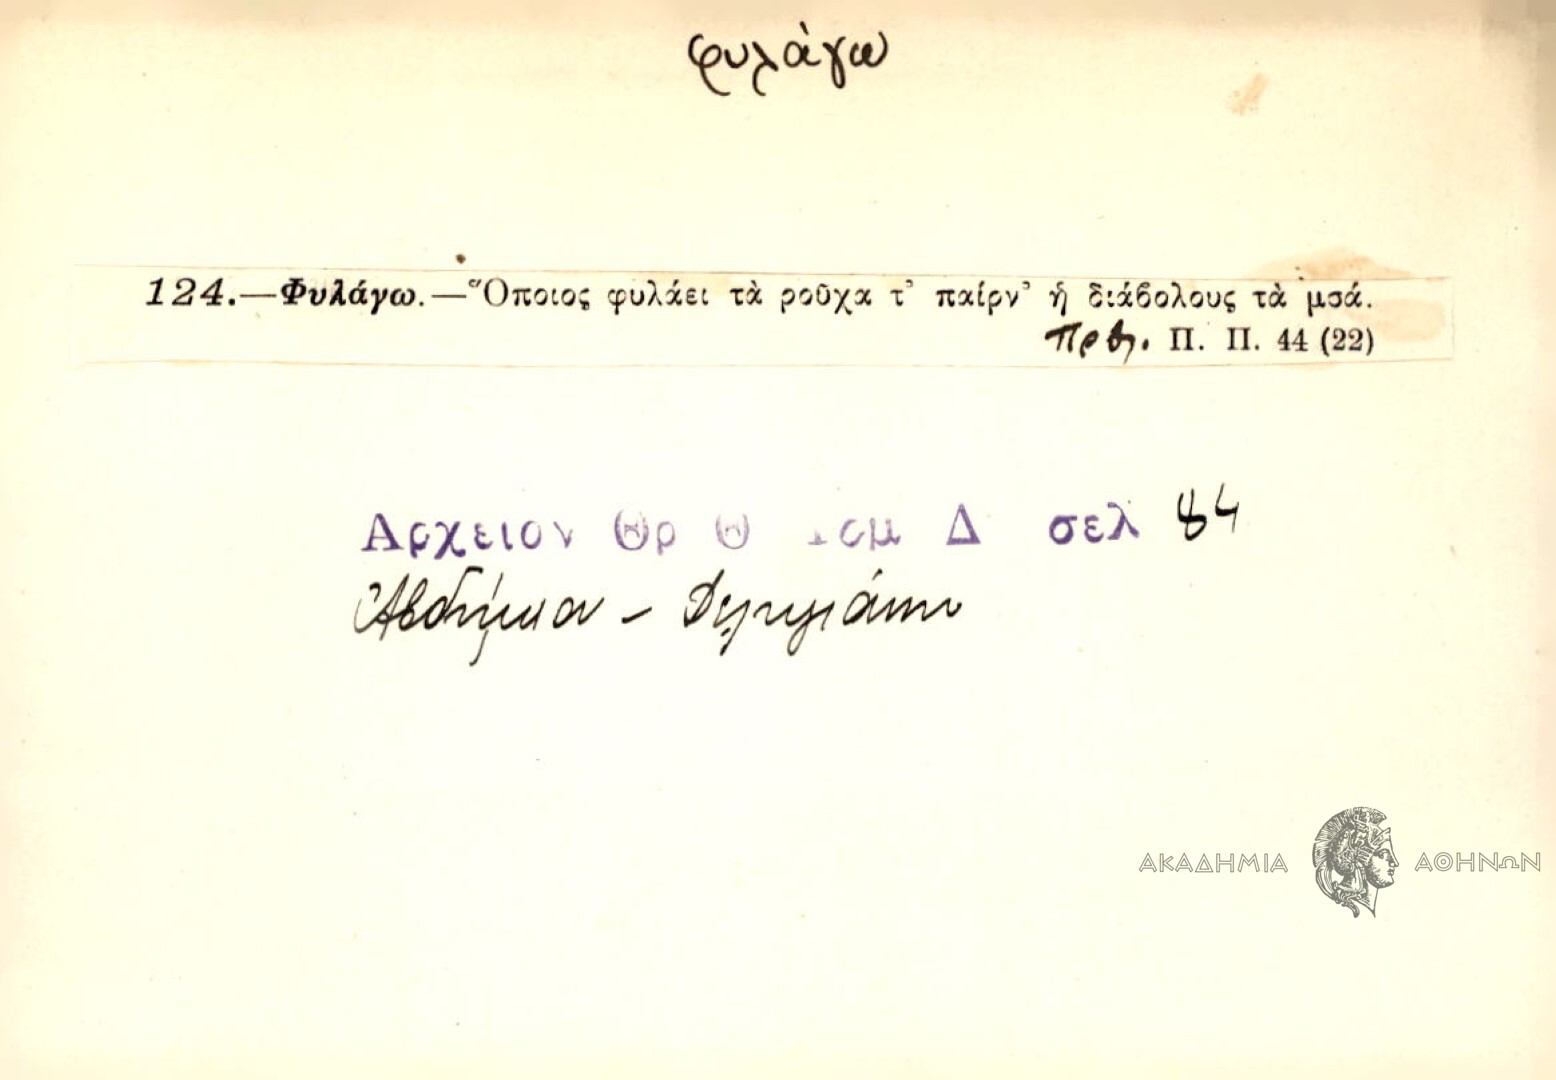 φυλάγω
124.—Φυλάγω.—Ὅποιος φυλάει τὰ ροῦχα τ' παίρν' ἡ διάβολους τὰ μσά.
Πρβλ. Π. Π. 44 (22)
Αρχειον Θρ Θ τομ Δ σελ 84
Αὐδήμιον -
ΑΚΑΔΗΜΙΑ ΑΘΗΝΩΝ